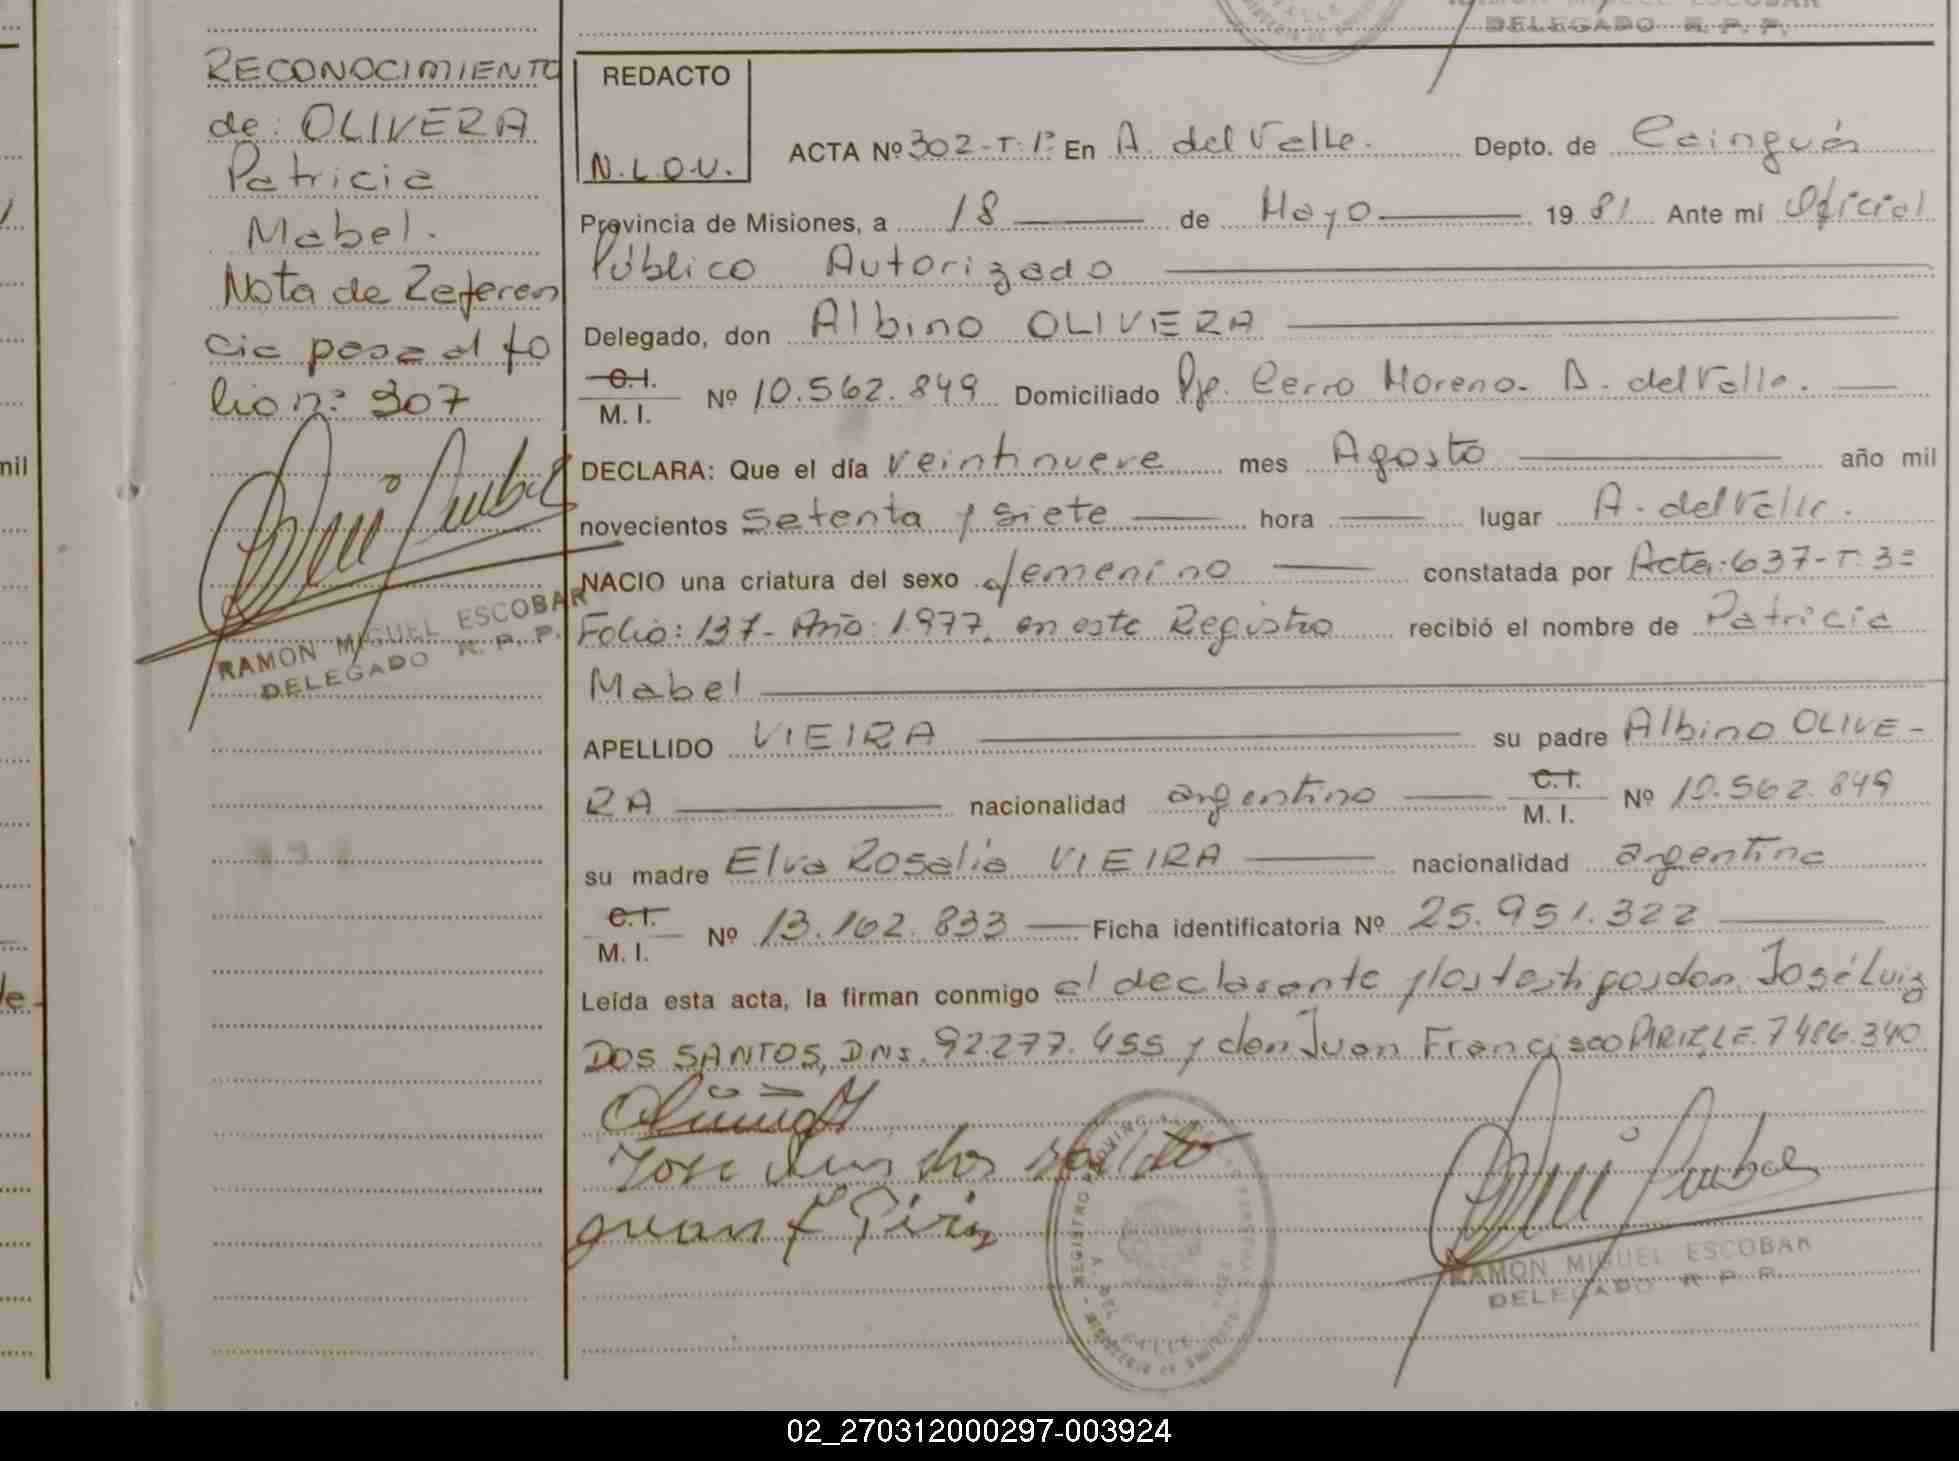 RAMON MIGUEL ESCOBAR
DELEGADO R. P. P.
RECONOCIMIENTO
de: OLIVERA
Patricia
Mabel.
Nota de Referen
cia pasa al fo
lio nº 307
RAMON MIGUEL ESCOBAR
DELEGADO R. P. P.
REDACTO
N.L.O.V.
ACTA Nº 302-T.1º En A. del Valle. Depto. de Cainguás
Provincia de Misiones, a 18 de Mayo 19 81 Ante mi Oficial
Público Autorizado
Delegado, don Albino OLIVERA
C.I.
M. I. Nº 10.562.849 Domiciliado Pje. Cerro Moreno. A. del Valle.
DECLARA: Que el día veintinueve mes Agosto año mil
novecientos setenta y siete hora lugar A. del Valle.
NACIO una criatura del sexo femenino constatada por Acta: 637-T. 3º
Folio: 137- Año: 1.977, en este Registro recibió el nombre de Patricia
Mabel
APELLIDO VIEIRA su padre Albino OLIVE-
RA nacionalidad argentino C.I. M. I. Nº 10.562.849
su madre Elva Rosalia VIEIRA nacionalidad argentina
C.I.
M. I. Nº 13.162.833 Ficha identificatoria Nº 25.951.322
Leída esta acta, la firman conmigo el declarante y los testigos don José Luiz
DOS SANTOS, DNI. 92277.455 y don Juan Francisco PIRIZ, LE. 7486.340
Jose Luis dos santo
juan F Piriz
RAMON MIGUEL ESCOBAR
DELEGADO R. P. P.
02_270312000297-003924